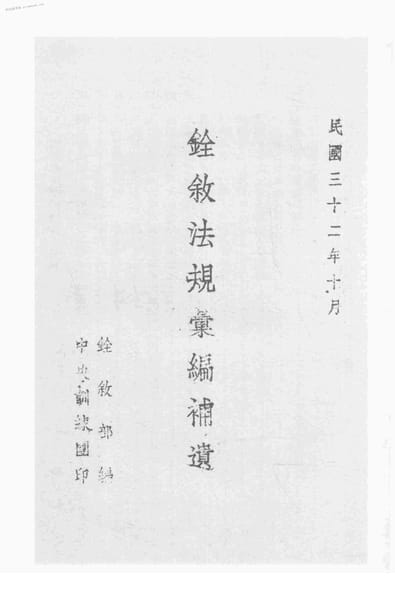 民國三十二年十月
銓敘法規彙編補遺
銓敘部編
中央訓練團印